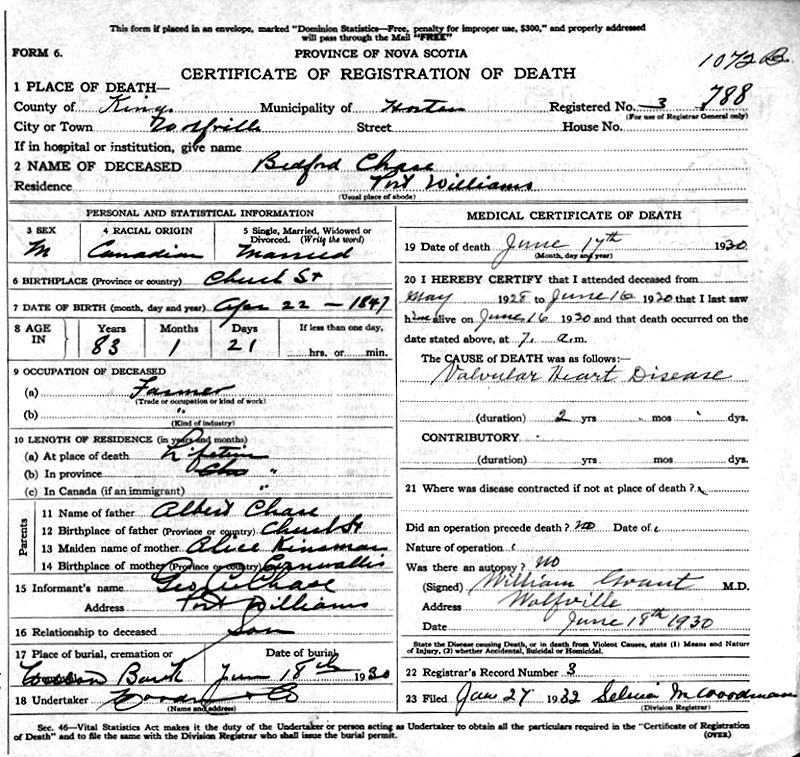 This form if placed in an envelope, marked "Dominion Statistics—Free, penalty for improper use, $300," and properly addressed
will pass through the Mail "FREE"
FORM 6. PROVINCE OF NOVA SCOTIA
1072 B
CERTIFICATE OF REGISTRATION OF DEATH
1 PLACE OF DEATH—
788
County of Kings Municipality of Horton Registered No. 3
(For use of Registrar General only)
City or Town Wolfville Street House No.
If in hospital or institution, give name
2 NAME OF DECEASED Bedford Chase
Residence Port Williams
(Usual place of abode)
PERSONAL AND STATISTICAL INFORMATION
3 SEX 4 RACIAL ORIGIN 5 Single, Married, Widowed or
Divorced. (Write the word)
M Canadian Married
6 BIRTHPLACE (Province or country) Church St
7 DATE OF BIRTH (month, day and year) Apr 22 – 1847
8 AGE IN Years Months Days If less than one day,
83 1 21 hrs. or min.
9 OCCUPATION OF DECEASED
(a) Farmer
(Trade or occupation or kind of work)
(b) "
(Kind of industry)
10 LENGTH OF RESIDENCE (in years and months)
(a) At place of death Lifetime
(b) In province "
(c) In Canada (if an immigrant) "
Parents
11 Name of father Albert Chase
12 Birthplace of father (Province or country) Church St
13 Maiden name of mother Alice Kinsman
14 Birthplace of mother (Province or country) Cornwallis
15 Informant's name Geo Chase
Address Port Williams
16 Relationship to deceased Son
17 Place of burial, cremation or Date of burial
June 18th 1930
18 Undertaker
(Name and address)
MEDICAL CERTIFICATE OF DEATH
19 Date of death June 17th 1930
(Month, day and year)
20 I HEREBY CERTIFY that I attended deceased from
May 1928 to June 16 1930 that I last saw
him alive on June 16 1930 and that death occurred on the
date stated above, at 7 a.m.
The CAUSE OF DEATH was as follows:—
Valvular Heart Disease
(duration) 2 yrs mos dys.
CONTRIBUTORY
(duration) yrs. mos. dys.
21 Where was disease contracted if not at place of death?
Did an operation precede death? no Date of
Nature of operation
Was there an autopsy? No
(Signed) William Grant M.D.
Address Wolfville
Date June 18th 1930
State the Disease causing Death, or in death from Violent Causes, state (1) Means and Nature
of Injury, (2) whether Accidental, Suicidal or Homicidal.
22 Registrar's Record Number 3
23 Filed 27 1932 M Woodman
(Division Registrar)
Sec. 46—Vital Statistics Act makes it the duty of the Undertaker or person acting as Undertaker to obtain all the particulars required in the "Certificate of Registration
of Death" and to file the same with the Division Registrar who shall issue the burial permit. (OVER)